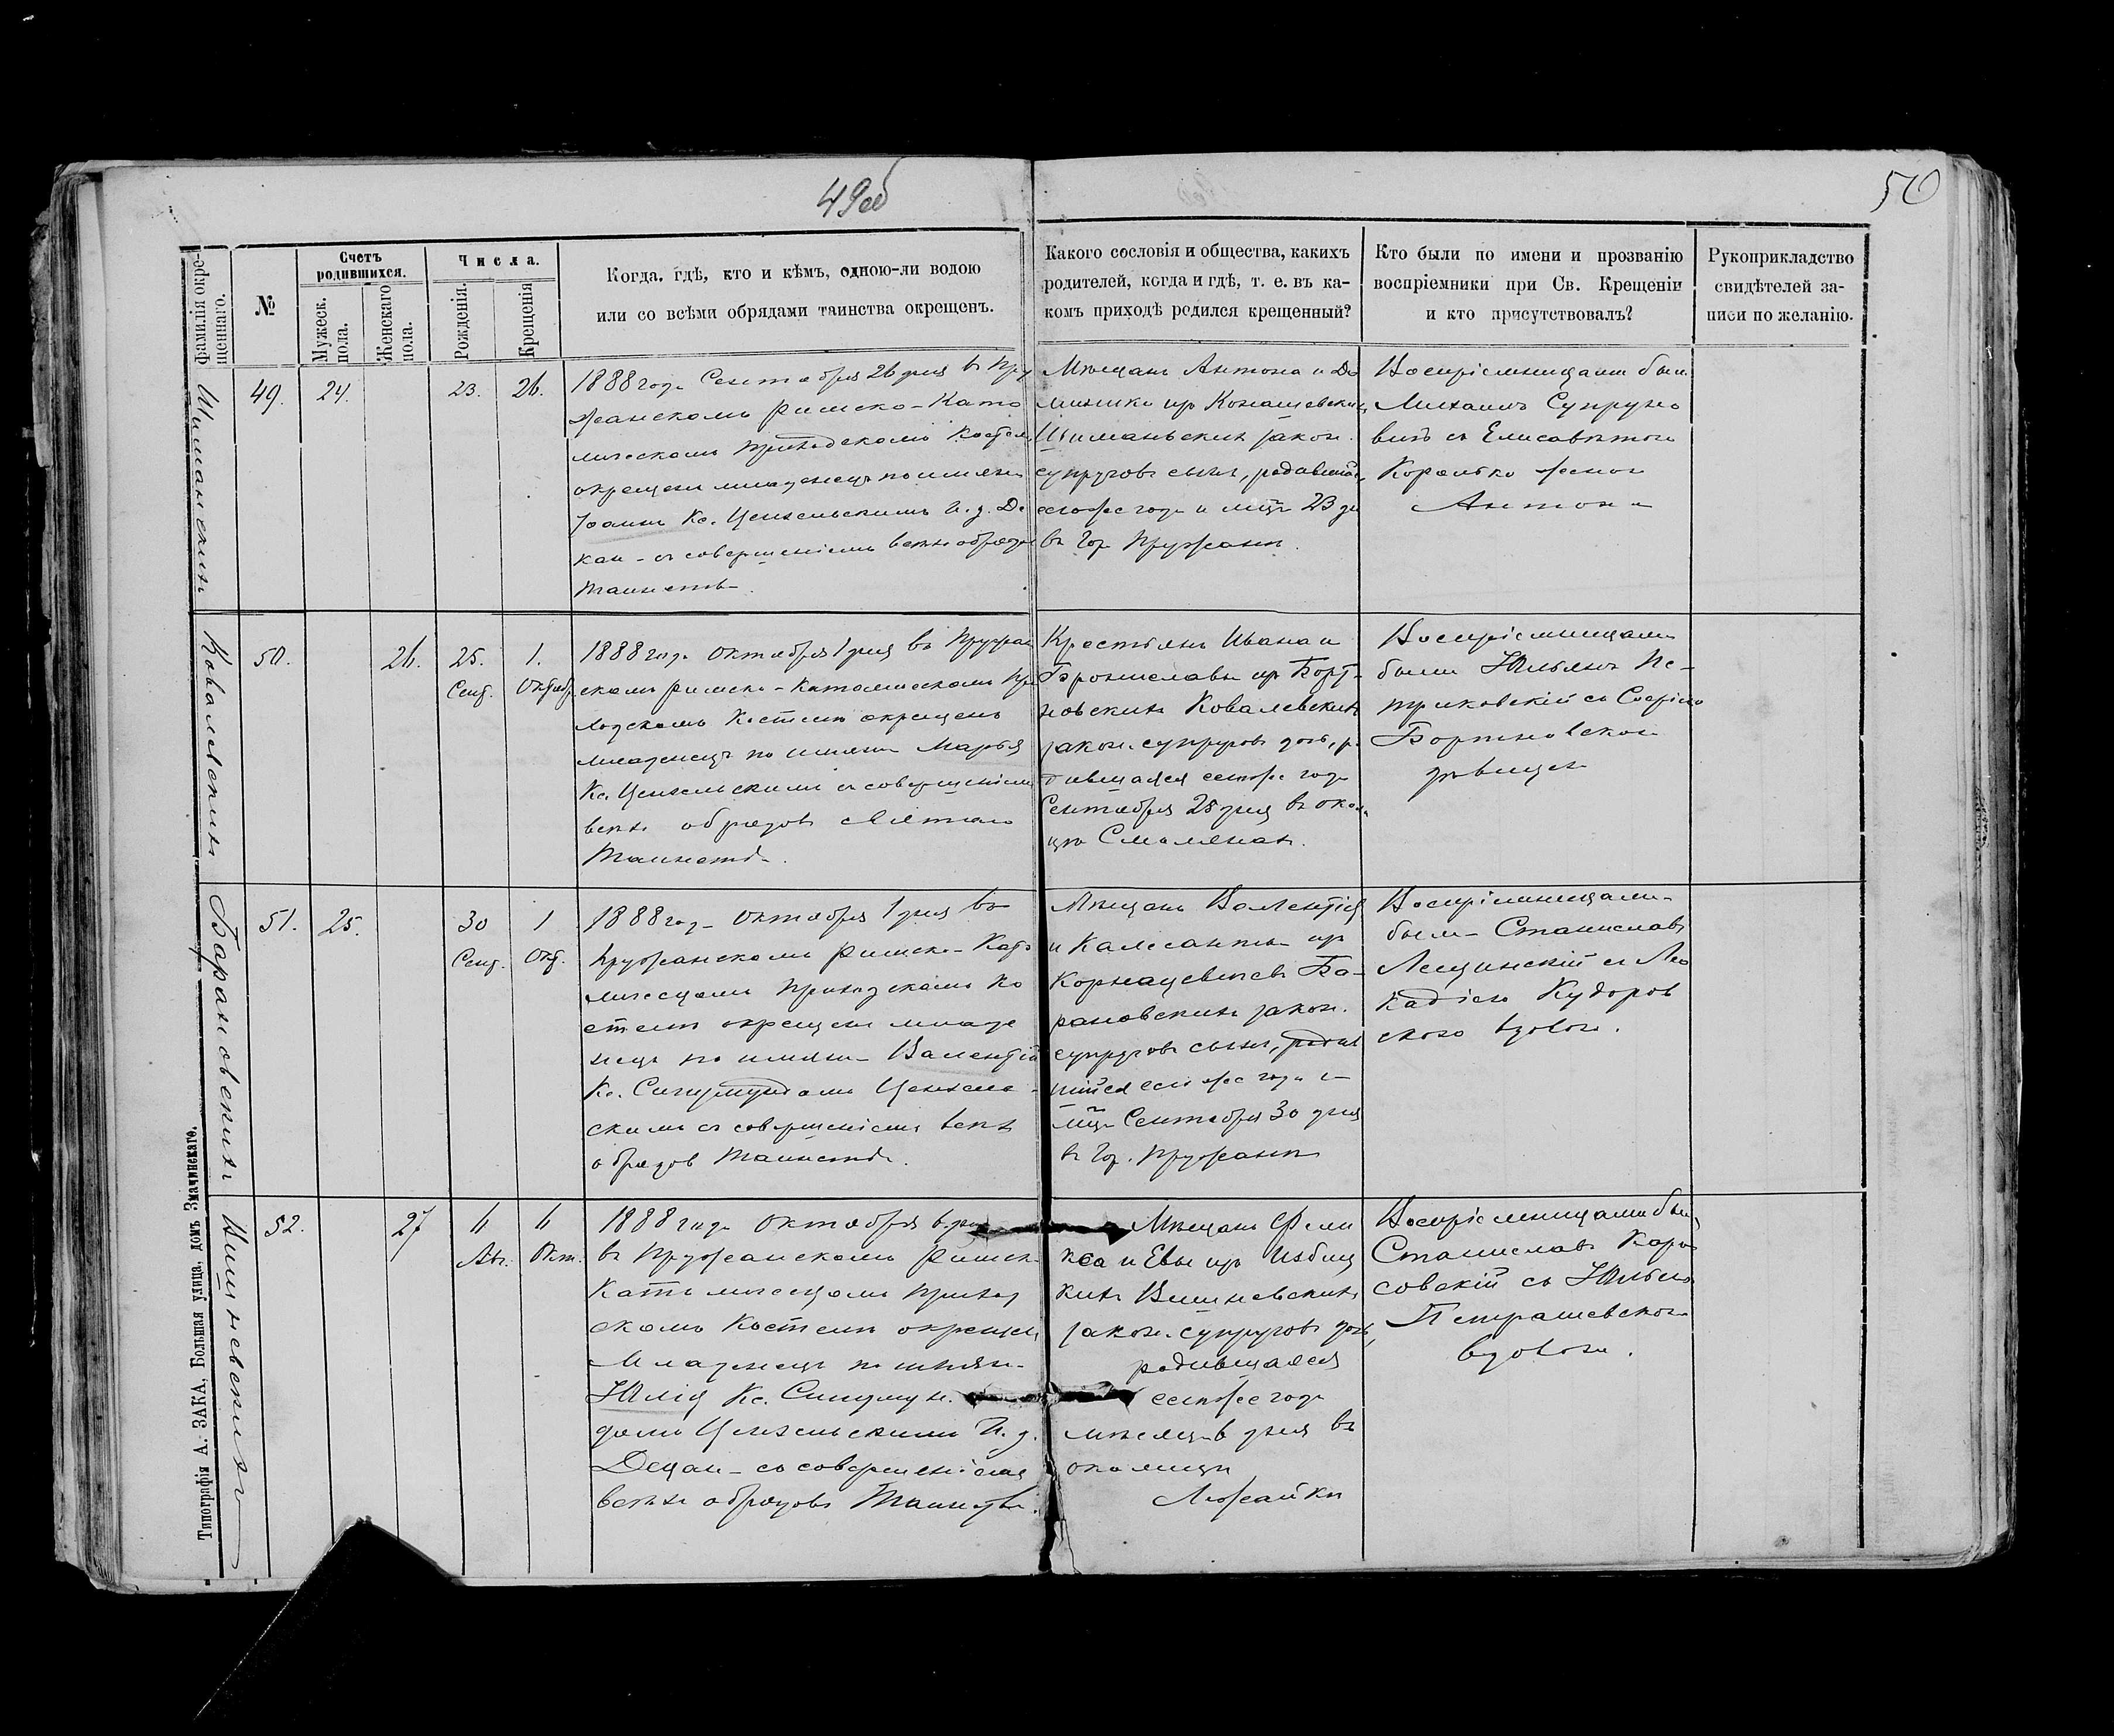 49об
50
Фамилія окре-
щеннаго.
№
Счетъ
родившихся.
Мужеск.
пола.
Женскаго
пола.
Числа.
Рожденія.
Крещенія
Когда, гдѣ, кто и кѣмъ, одною-ли водою
или со всѣми обрядами таинства окрещенъ.
Какого сословія и общества, какихъ
родителей, когда и гдѣ, т. е. въ ка-
комъ приходѣ родился крещенный?
Кто были по имени и прозванію
воспріемники при Св. Крещеніи
и кто присутствовалъ?
Рукоприкладство
свидѣтелей за-
писи по желанію.
49.
24.
23.
26.
1888 года Сентября 26 дня въ Пру
жанскомъ Римско-Като
лическомъ Приходскомъ Костел
окрещенъ младенецъ по имени
Іоаннъ Кс. Ценхельскимъ И. д. Де
кан- съ совершеніемъ всѣхъ обрядо
Таинств
Мѣщанъ Антона и До
миники
закон.
супруговъ сынъ, родившійс
сегоже года и мца 23 дн
въ Гор Пружанѣ.
Воспріемницами были
Михаилъ Супруно
вичъ съ Елисаветою
Королько женою
Антона
Ковалевскихъ
50.
26.
25.
Сент.
1.
Октябр.
1888 года Октября 1 дня въ Пружан
скомъ Римско-Католическомъ При
ходскомъ Костелѣ окрещенъ
младенецъ по имени Марья
Кс. Ценхельскимъ съ совершеніемъ
всѣхъ обрядовъ
Таинств
Крестьянъ Ивана и
Брониславы изъ Борт-
новскихъ Ковалевскихъ
закон. супруговъ дочь, ро
дившаяся сегоже года
Сентября 25 дня въ окол
цѣ Смолянахъ.
Воспріемницами
были Юльянъ Пе-
триковскій съ Софіею
Бортновскою
дѣвицею
Барановскихъ
51.
25.
30
Сент.
1
Окт.
1888 год Октября 1 дня въ
Пружанскомъ Римско-Като
лическомъ Приходскомъ Ко
стелѣ окрещенъ младе
нецъ по имени Валентій
Кс. Сигизмундомъ Ценхель-
скимъ съ совершеніемъ всѣхъ
обрядов Таинств
Мѣщанъ Валентія
и Калесанты изъ
Корнацевичевъ Ба-
рановскихъ закон.
супруговъ сынъ, родив
шійся сегоже года и
мца Сентября 30 дня
въ Гор. Пружанѣ
Воспріемницами
были Станиславъ
Лещинскій съ Лео
кадіею Кудоров
скою вдовою.
Вишневскихъ
52.
27
6
Ав.
6
Окт.
1888 года Октября 6 дня
въ Пружанскомъ Римск
Католическомъ Приход
скомъ Костелѣ окрещен
младенецъ по имени
Юлія Кс. Сигизмун.
домъ Ценхельскимъ И. д.
Декан- съ совершеніемъ
всѣхъ обрядовъ Таинств.
Мѣщанъ Фели
кса и Евы изъ Избиц
кихъ Вишневскихъ
закон. супруговъ дочь,
родившаяся
сегоже года
дня въ
околицѣ
Воспріемницами были
Станиславъ Кора
совскій съ Юлью
Петрашевскою
вдовою.
Типографія А. ЗАКА, Большая улица, домъ Значинскаго.